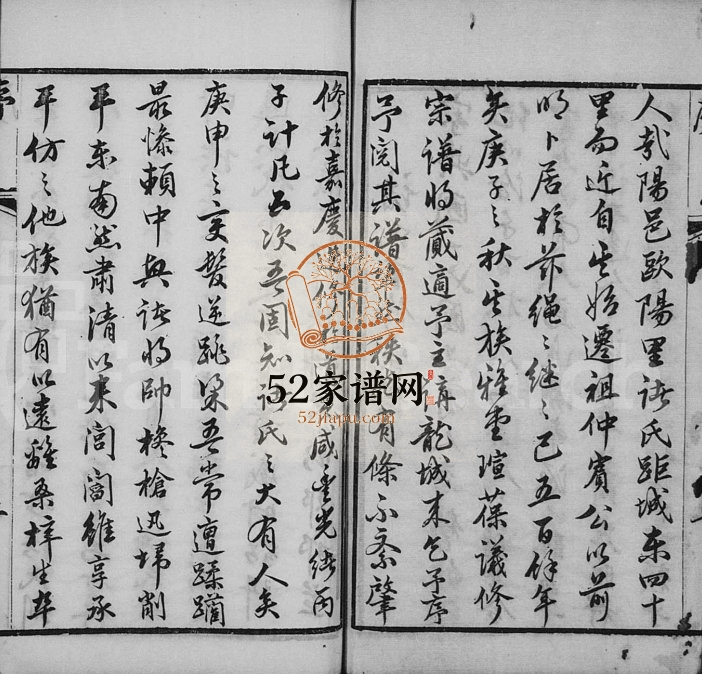 人哉陽邑歐陽里諸氏距城東四十
里而近自其始遷祖仲賓公以前
明卜居於茲繩繩繼繼已五百餘年
矣庚子之秋其族雅重瑄葆議修
宗譜將蕆適予主講龍城來乞予序
予閱其譜 有條不紊肇
修於嘉慶 咸豐光緒丙
子計凡五次吾固知諸氏之大有人矣
庚申之變髮逆跳梁吾常遭蹂躪
最慘賴中興諸將帥欃槍迅埽削
平東南肅清以來閭閻雖享承
平仿之他族猶有以遠離桑梓生卒
52家谱网
52jiapu.com